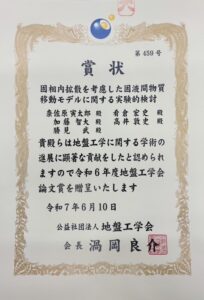 第459号
賞状
固相内拡散を考慮した固液間物質
移動モデルに関する実験的検討
奈佐原寅太郎 殿 看倉宏史 殿
加藤智大 殿 高井敦史 殿
勝見 武 殿
貴殿らは地盤工学に関する学術の
進展に顕著な貢献をしたと認められ
ますので令和6年度地盤工学会
論文賞を贈呈いたします
令和7年6月10日
公益社団法人 地盤工学会
会長 渦岡良介